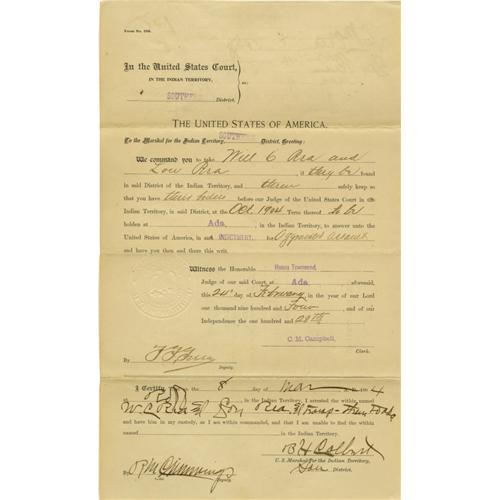 In the United States Court,
IN THE INDIAN TERRITORY,
ss:
SOUTHERN District.
THE UNITED STATES OF AMERICA.
SOUTHERN
To the Marshal for the Indian Territory, District, Greeting:
We command you to take Will C Rea and
Lou Rea, if they be found
in said District of the Indian Territory, and them safely keep so
that you have their bodies before our Judge of the United States Court in the
Indian Territory, in said District, at the Oct 1904 Term thereof to be
holden at Ada, in the Indian Territory, to answer unto the
United States of America, in an INDICTMENT, for Aggravated Assault
and have you then and there this writ.
Witness the Honorable Hosea Townsend,
Judge of our said Court, at Ada, aforesaid,
this 24" day of February in the year of our Lord
one thousand nine hundred and Four, and of our
Independence the one hundred and 28th
C. M. Campbell,
Clerk.
By
Deputy.
I Certify the 8 day of Mar 4
Indian Territory, I arrested the within named
W. C. Rea
and have him in custody, as I am within commanded, and that I am unable to find the within
named
B H Colbert
U. S. Marshal for the Indian Territory,
Sou District.
By
Deputy.